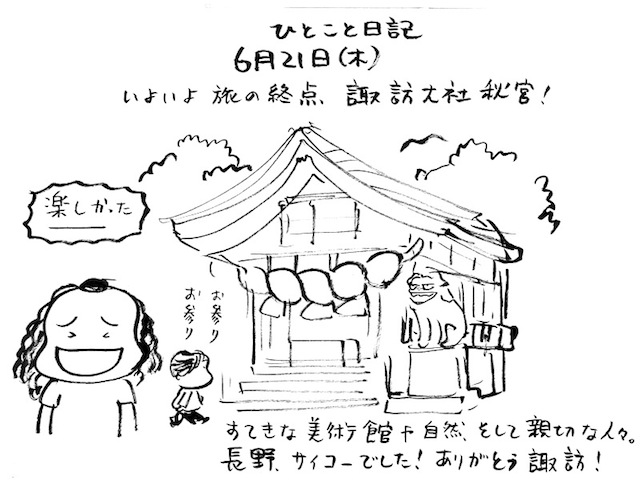 ひとこと日記
6月21日(木)
いよいよ旅の終点、諏訪大社秋宮!
楽しかった
お参り
お参り
すてきな美術館や自然、そして親切な人々。
長野、サイコーでした!ありがとう諏訪!